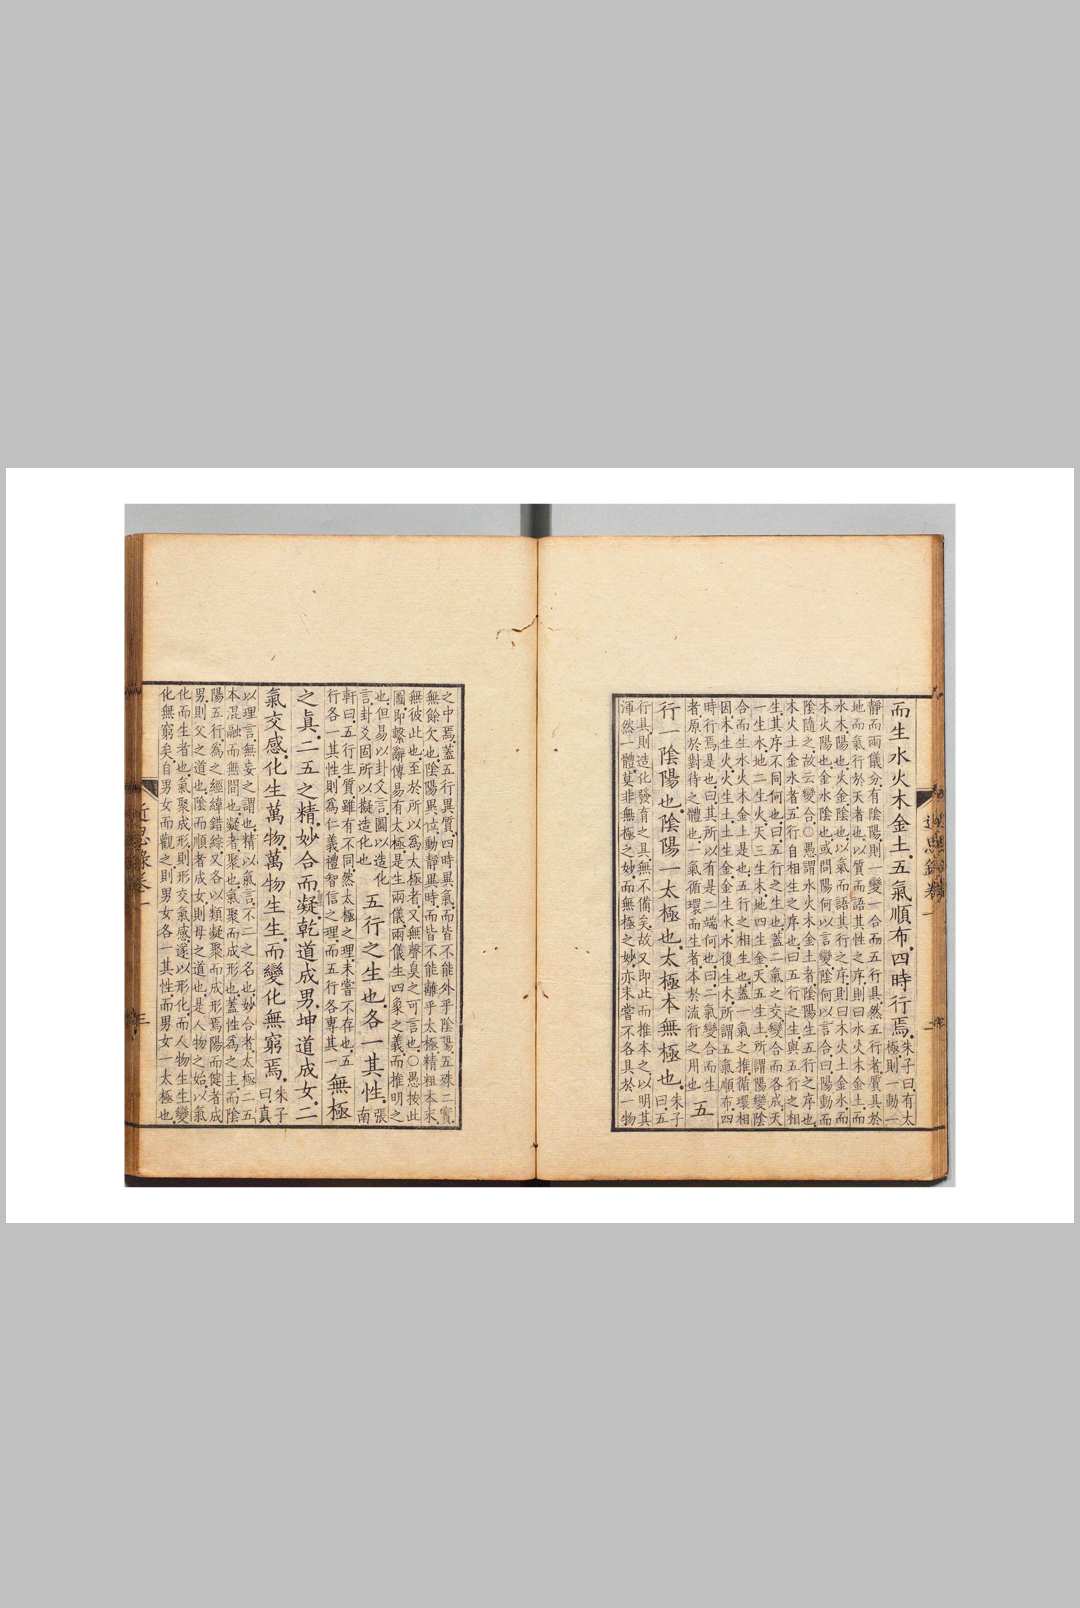 而生水火木金土五氣順布四時行焉
朱子曰有太
極則一動一
靜而兩儀分有陰陽則一變一合而五行具然五行者質具於
地而氣行於天者也以質而語其性之序則曰水火木金土而
水木陽也火金陰也以氣而語其行之序則曰木火土金水而
木火陽也金水陰也或問陽何以言變陰何以言合曰陽動而
陰隨之故云變合○愚謂水火木金土者陰陽生五行之序也
木火土金水者五行自相生之序也曰五行之生與五行之相
生其序不同何也曰五行之生也蓋二氣之交變合而各成天
一生水地二生火天三生木地四生金天五生土所謂陽變陰
合而生水火木金土是也五行之相生也蓋一氣之推循環相
因木生火火生土土生金金生水水復生木所謂五氣順布四
時行焉是也曰其所以有是二端何也曰二氣變合而生
者原於對待之體也一氣循環而生者本於流行之用也
五
行一陰陽也陰陽一太極也太極本無極也
朱子
曰五
行具則造化發育之具無不備矣故又即此而推本之以明其
渾然一體莫非無極之妙而無極之妙亦未嘗不各具於一物
之中焉蓋五行異質四時異氣而皆不能外乎陰陽五殊二實
無餘欠也陰陽異位動靜異時而皆不能離乎太極精粗本末
無彼此也至於所以爲太極者又無聲臭之可言也○愚按此
圖即繫辭傳易有太極是生兩儀兩儀生四象之義而推明之
也但易以卦爻言圖以造化
言卦爻固所以擬造化也
五行之生也各一其性
張
南
軒曰五行生質雖有不同然太極之理未嘗不存也五
行各一其性則爲仁義禮智信之理而五行各專其一
無極
之眞二五之精妙合而凝乾道成男坤道成女二
氣交感化生萬物萬物生生而變化無窮焉
朱子
曰真
以理言無妄之謂也精以氣言不二之名也妙合者太極二五
本混融而無間也凝者聚也氣聚而成形也蓋性爲之主而陰
陽五行爲之經緯錯綜又各以類凝聚而成形焉陽而健者成
男則父之道也陰而順者成女則母之道也是人物之始以氣
化而生者也氣聚成形則形交氣感遂以形化而人物生生變
化無窮矣自男女而觀之則男女各一其性而男女一太極也
近思錄卷一
三